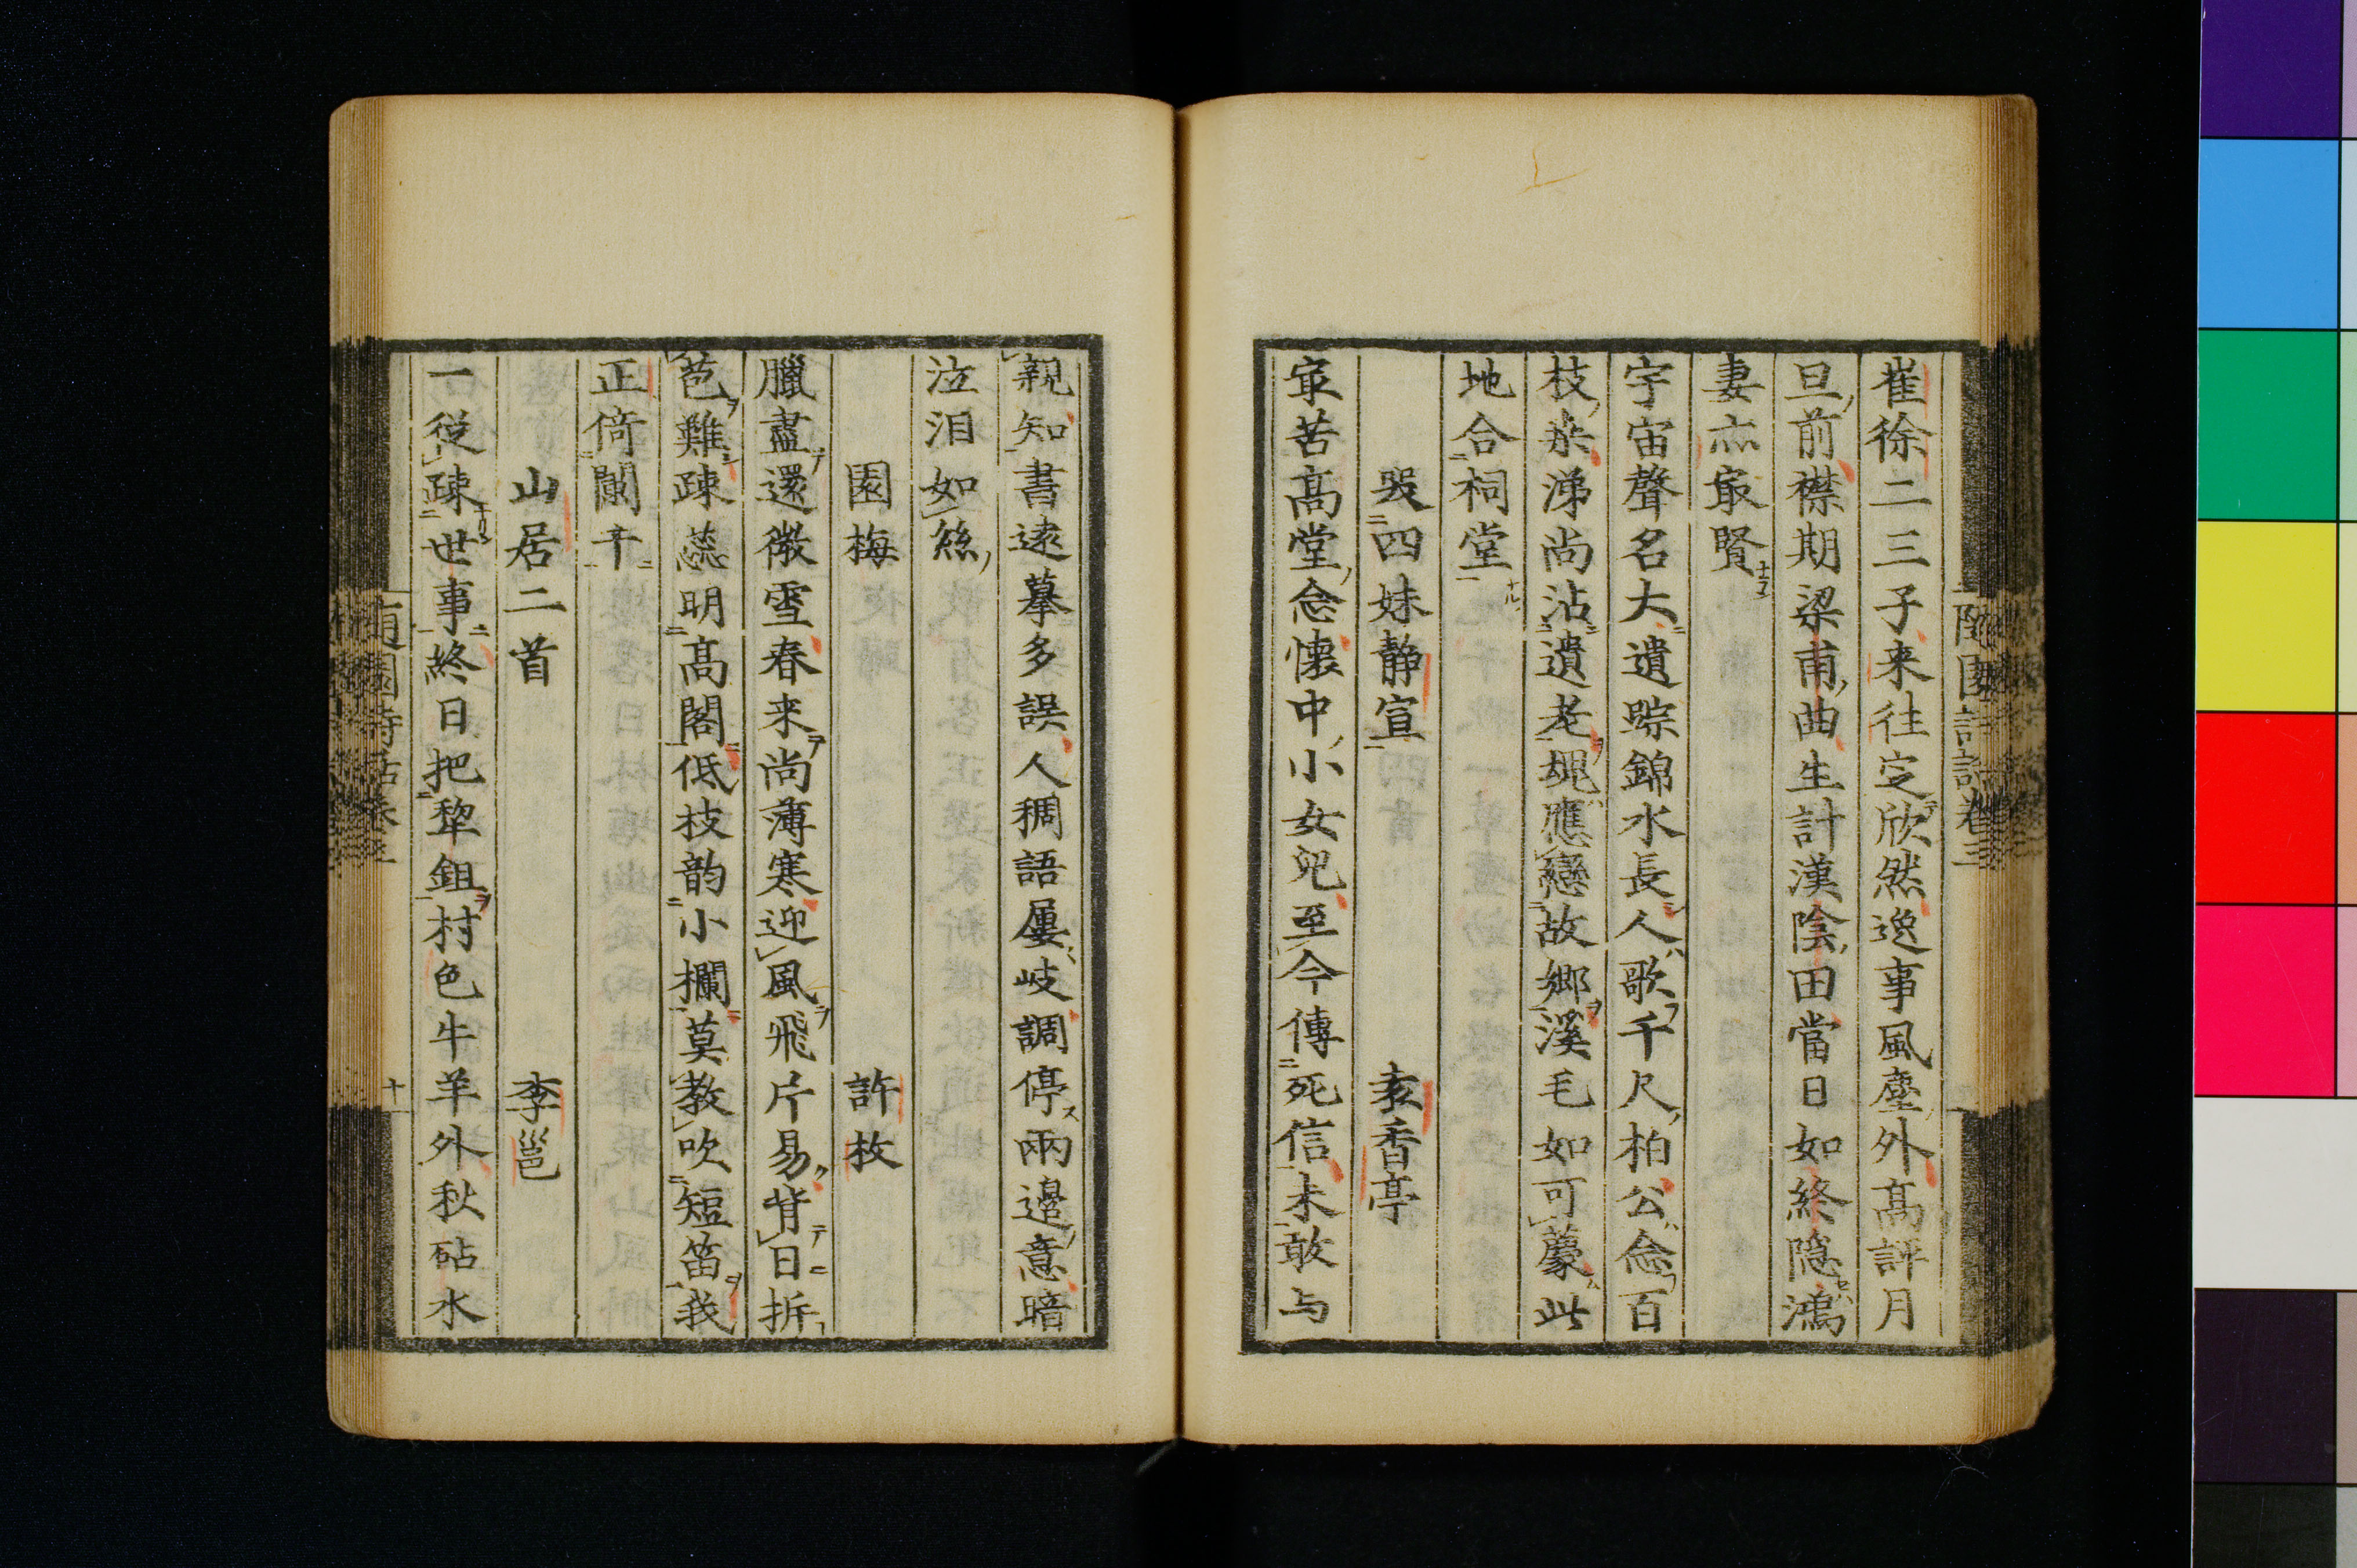 崔徐二三子来往定欣然逸事風塵外高評月
旦前襟期梁甫曲生計漢陰田當日如終隠鴻
妻亦㝡賢
宇宙聲名大遺踪錦水長人歌千尺柏公念百
枝桒涕尚沾遺老䰟應戀故郷溪毛如可薦此
地合祠堂
哭四妹静宣
袁香亭
㝡苦高堂念懐中小女兒至今傳死信未敢与
親知書遠摹多誤人稠語屢岐調停兩邉意暗
泣泪如絲
園梅
許枚
臘盡還微雪春来尚薄寒迎風飛片易背日拆
苞難疎蕊明高閣低枝韵小欄莫教吹短笛我
正倚闌干
山居二首
李邕
一從疎世事終日把犂鉏村色牛羊外秋砧水